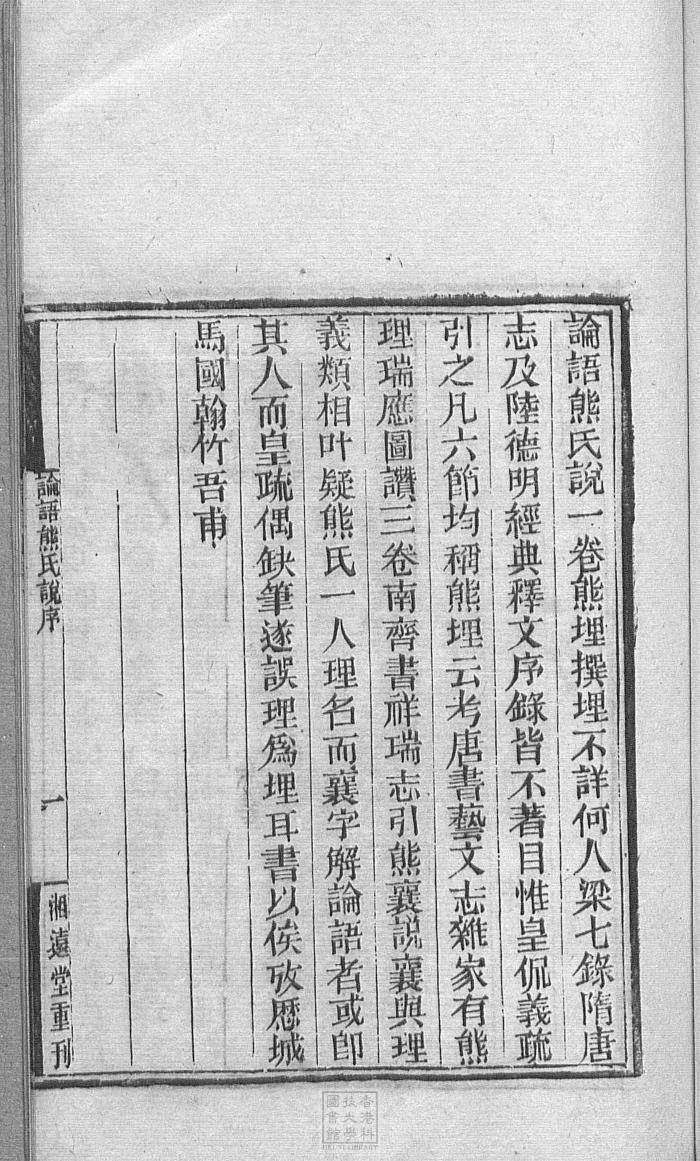 論語熊氏說一卷熊埋撰埋不詳何人梁七錄隋唐
志及陸德明經典釋文序錄皆不著目惟皇侃義疏
引之凡六節均稱熊埋云考唐書藝文志雜家有熊
理瑞應圖讚三卷南齊書祥瑞志引熊襄說襄與理
義類相叶疑熊氏一人理名而襄字解論語者或卽
其人而皇疏偶缺筆遂誤理爲埋耳書以俟攷歷城
馬國翰竹吾甫
論語熊氏說序
一
湘遠堂重刊
香港科
技大學
圖書館
HKUST LIBRARY